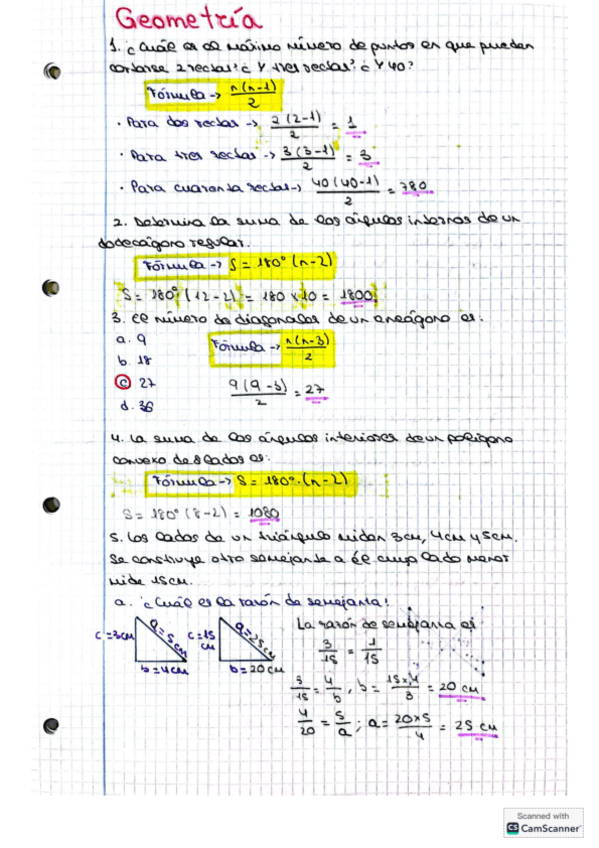 Geometría
1. ¿Cuál es el máximo número de puntos en que pueden
cortarse 2 rectas? ¿Y tres rectas? ¿Y 40?
Fórmula → n(n-1)/2
· Para dos rectas → 2(2-1)/2 = 1
· Para tres rectas → 3(3-1)/2 = 3
· Para cuarenta rectas → 40(40-1)/2 = 780
2. Determina la suma de los ángulos internos de un
dodecágono regular.
Fórmula → S = 180° (n-2)
S = 180° (12-2) = 180 x 10 = 1800
3. El número de diagonales de un eneágono es:
a. 9
Fórmula → n(n-3)/2
b. 18
c. 27
9(9-3)/2 = 27
d. 36
4. La suma de los ángulos interiores de un polígono
convexo de 8 lados es:
Fórmula → S = 180° · (n-2)
S = 180° (8-2) = 1080
5. Los lados de un triángulo miden 3cm, 4cm y 5cm.
Se construye otro semejante a él cuyo lado menor
mide 15cm.
a. ¿Cuál es la razón de semejanza?
c = 3cm a = 5cm b = 4cm
c = 15 cm a = 25cm b = 20cm
La razón de semejanza es
3/15 = 1/15
3/15 = 4/b, b = 15x4/3 = 20 cm
4/20 = 5/a; a = 20x5/4 = 25 cm
Scanned with
CS CamScanner